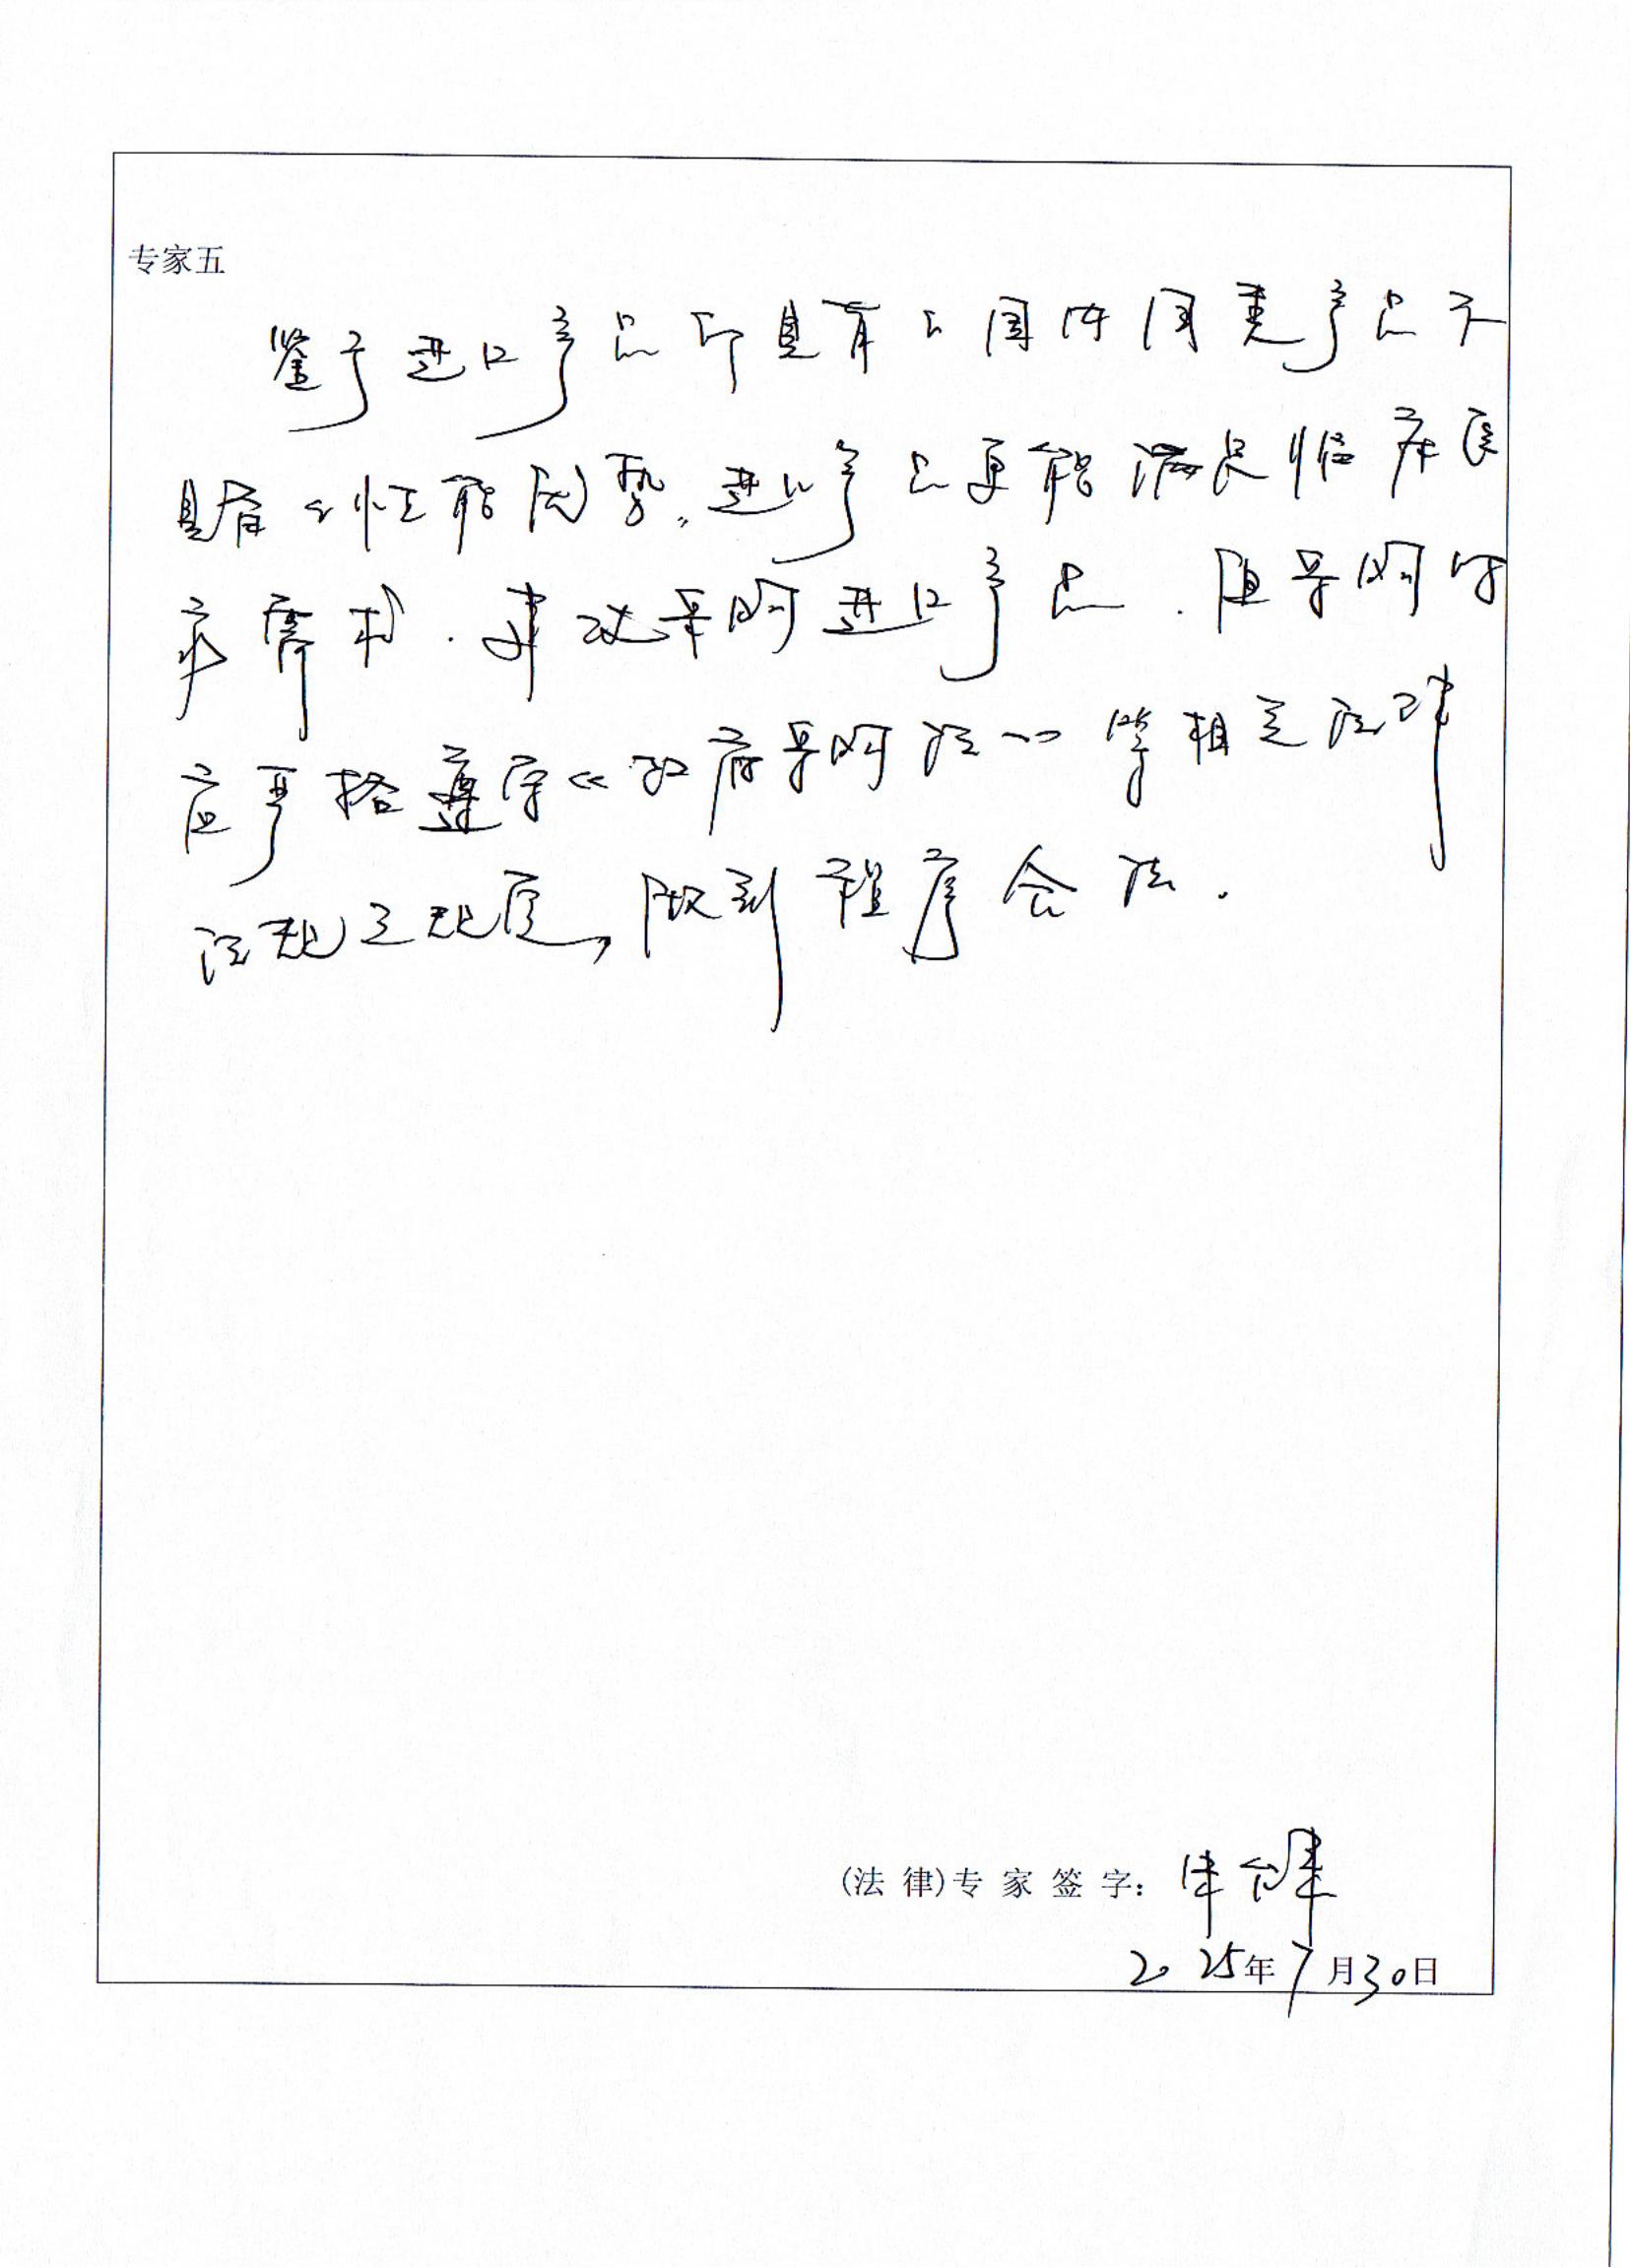 专家五
鉴于进口产品所具有的国内同类产品不
具有的性能优势,进口产品更能满足临床医
疗需求.建议采购进口产品.但采购时
应严格遵守《政府采购法》等相关法律
法规之规定,做到程序合法.
(法 律)专 家 签 字:
2025年7月30日